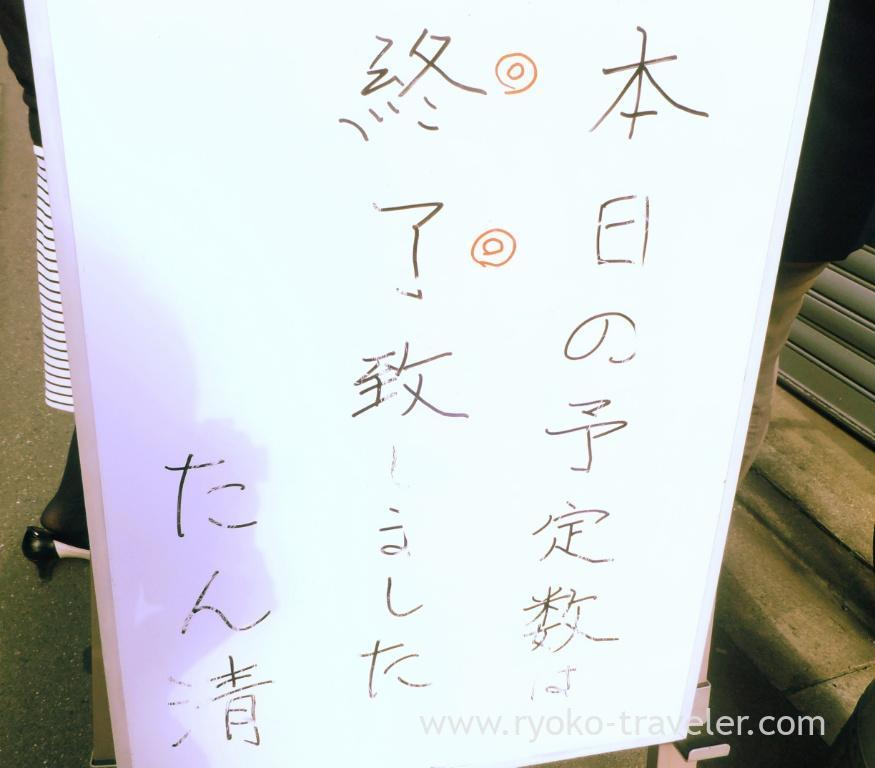 本日の予定数は
終了致しました
たん清
www.ryoko-traveler.com